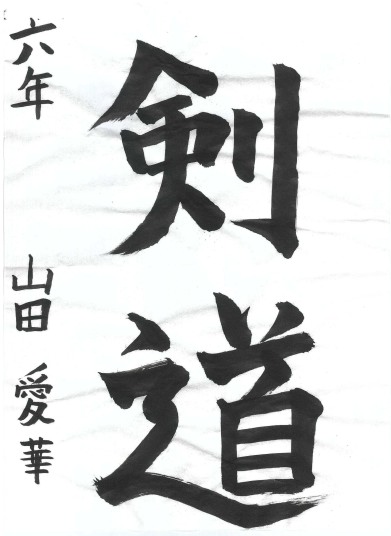 剣道
六年 山田 愛華